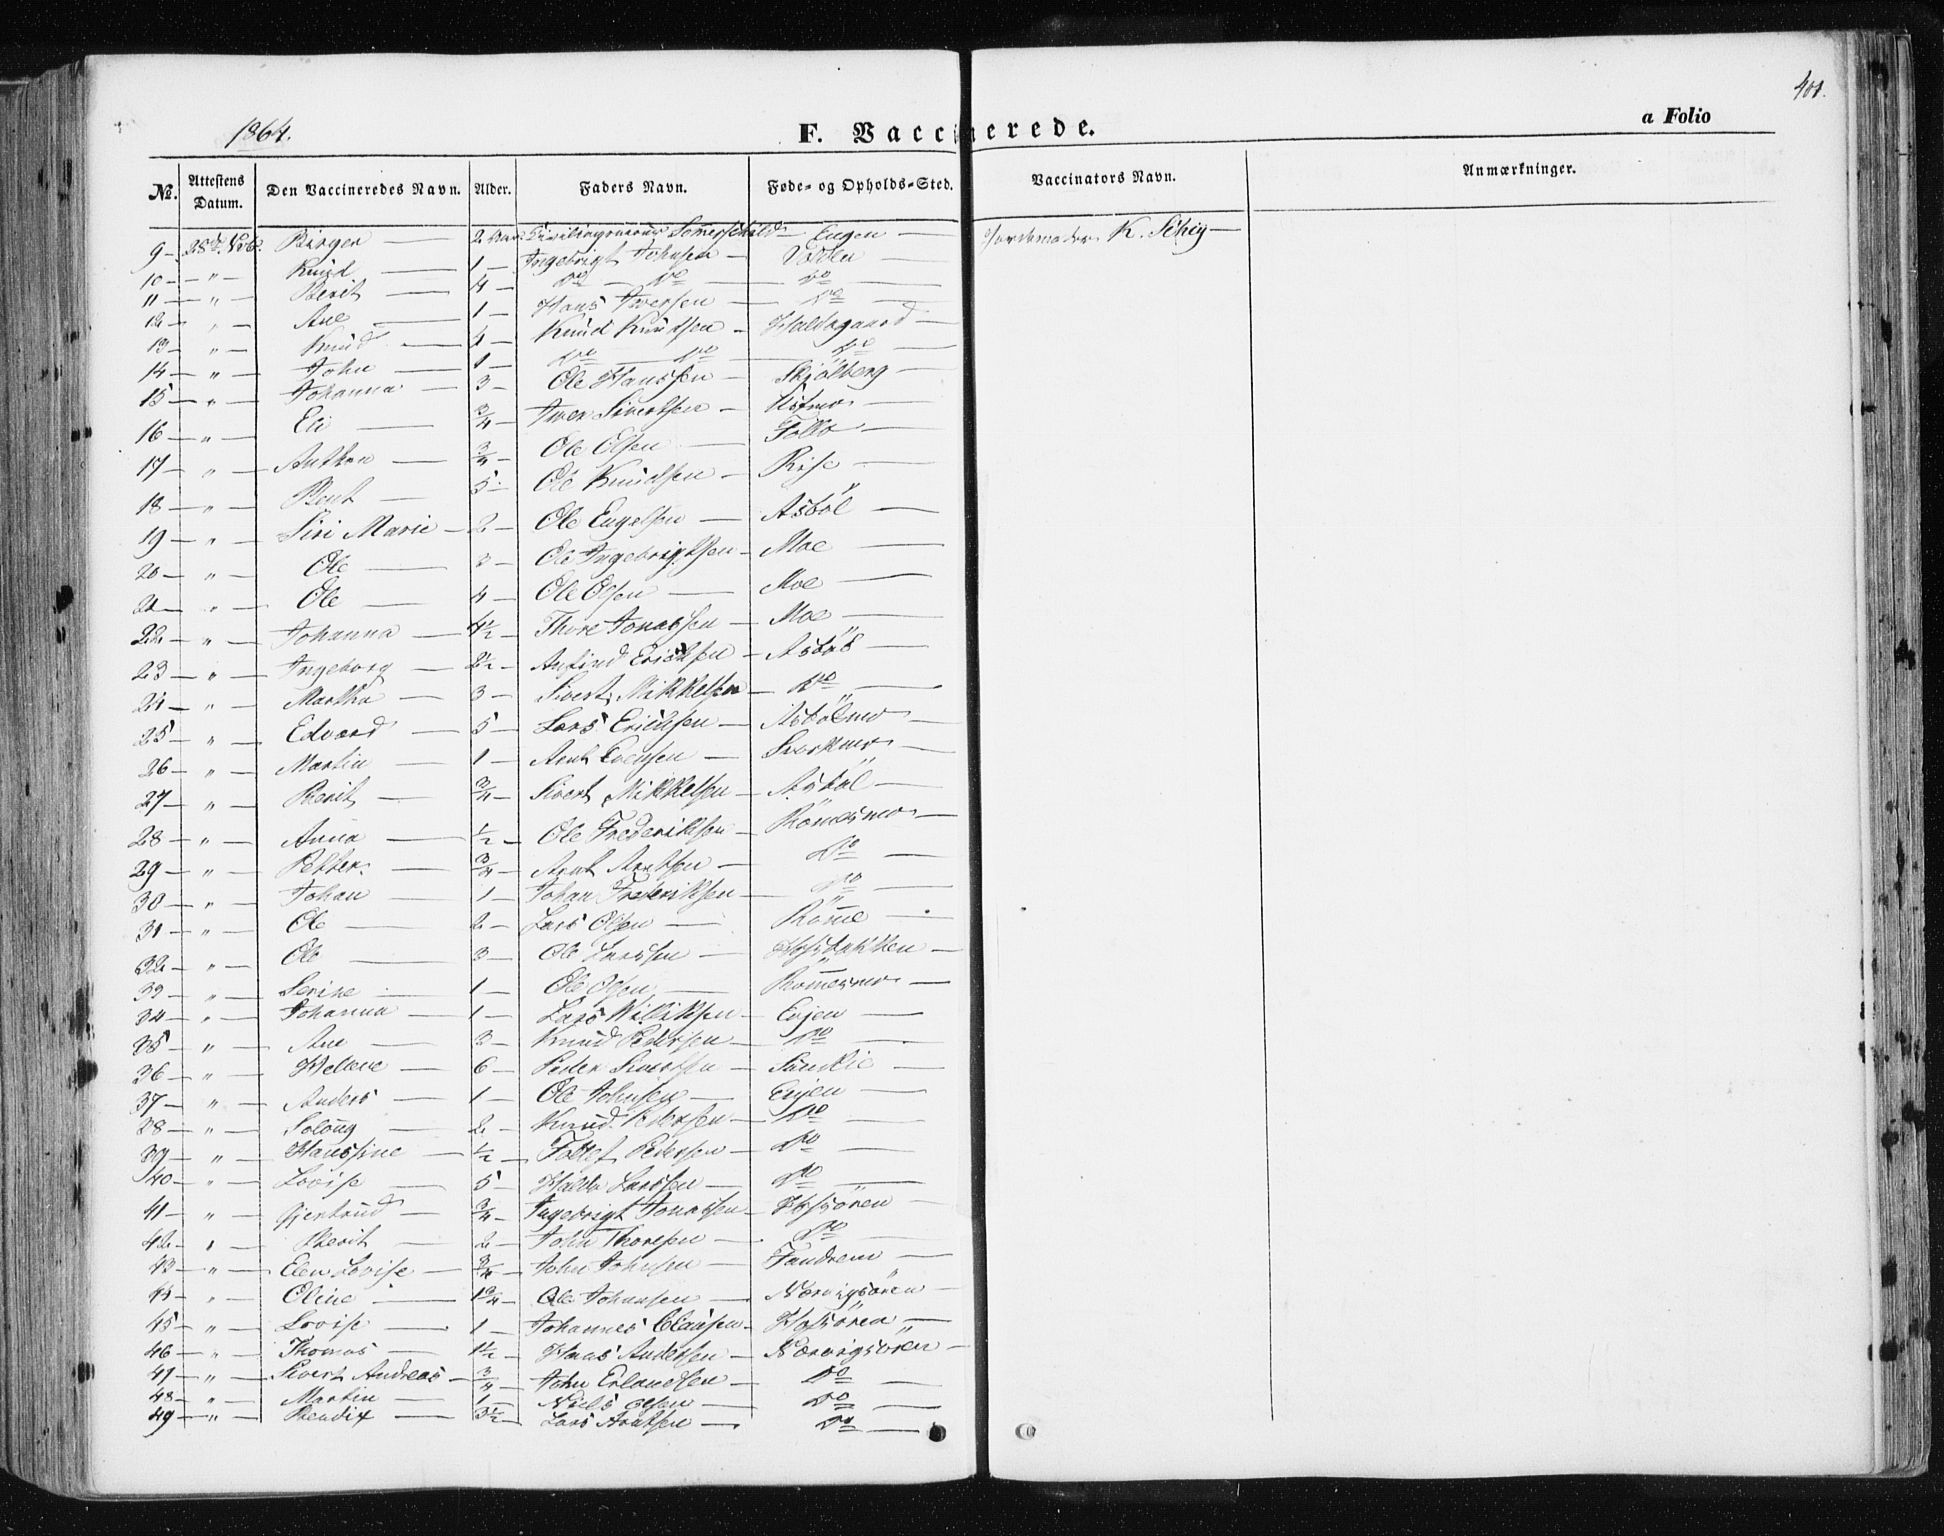 401.
1864.
F. Vaccinerede.
a Folio
№. Attestens Datum. Den Vaccineredes Navn. Alder. Faders Navn. Føde- og Opholds-Sted. Vaccinators Navn. Anmærkninger.
9 — Birger — 2 Eugen — Jordemoder K. Schey —
10 — " — Knud — 1 — Ingebrigt Johnsen —
11 — " — Berit — 4 — Do — Do — Do
12 — " — Ane — 1 — Hans Iversen — Do —
13 — " — Knud — 4 — Knud Knudsen — Haldogaard —
14 — " — John — 1 — Do — Do — Do —
15 — " — Johanna — 3 — Ole Hanssen — Skjølberg —
16 — " — Eli — 3/4 — Iver Sivertsen — Ustmo —
17 — " — Anthon — 3/4 — Ole Olsen — Follo —
18 — " — Bent — 5 — Ole Knudsen — Rise —
19 — " — Siri Marie — 2 — Ole Engelsen — Asbøl —
20 — " — Ole — 3 — Ole Ingebrigtsen — Moe —
21 — " — Ole — 4 — Ole Olsen — Moe —
22 — " — Johanna — 4½ — Thore Jonassen — Moe —
23 — " — Ingeborg — 2½ — Anfind Ericksen — Asbøl —
24 — " — Martha — 3 — Sivert Mikkelsen — Do —
25 — " — Edvard — 5 — Lars Ericksen — Asbølmo —
26 — " — Martin — 1 — Arnt Evensen — Sværkmo —
27 — " — Berit — 3/4 — Sivert Mikkelsen — Asbøl —
28 — " — Anna — ½ — Ole Frederiksen — Rømmesmo —
29 — " — Petter — 3/4 — Arnt Arntsen — Do —
30 — " — Johan — 1 — Johan Frederiksen — Do —
31 — " — Ole — 2 — Lars Olsen — Rømme —
32 — " — Ole — 3 — Ole Larssen — Hofsbakken —
33 — " — Serine — 1 — Ole Olsen — Rømmesmo —
34 — " — Johanna — 1 — Lars Williksen — Evjen —
35 — " — Ane — 3 — Knud Pedersen — Do —
36 — " — Helene — 6 — Peder Sivertsen —
37 — " — Anders — 1 — Ole Johnsen — Evjen —
38 — " — Solaug — 2 — Knud Pedersen — Do —
39 — " — Hanssine — ½ — Tollef Pedersen — Do —
40 — " — Lovise — 5 — Haldo Larssen — Do —
41 — " — Gjertrud — 3/4 — Ingebrigt Jonassen — Hofsøren —
42 — " — Berit — 2 — John Thoresen — Do —
43 — " — Elen Lovise — 3/4 — John Johnsen — Fandrem —
44 — " — Oline — 1 3/4 — Ole Johansen — Nærvigsøren —
45 — " — Lovise — 1 — Johannes Clausen — Hofsøren —
46 — " — Thomas — 1½ — Hans Andersen — Nærvigsøren —
47 — " — Sivert Andreas — 3/4 — John Erlandsen — Do —
48 — " — Martin — 1 — Niels Olsen — Do —
49 — " — Bendix — 3½ — Lars Arntsen — Do —